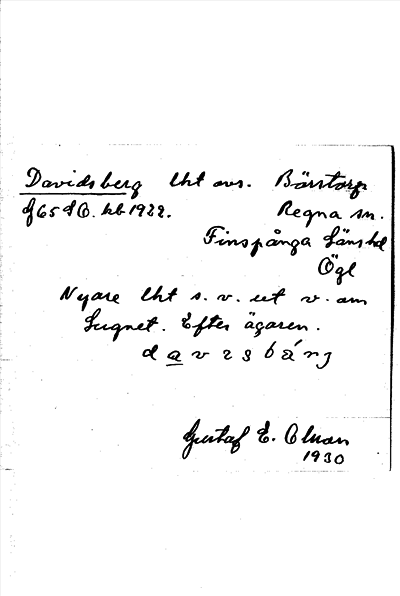 Davidsberg lht avs. Bärstorp
J65 d O. kb 1922. Regna sn.
Finspånga länshd
Ögl
Nyare lht s. v. ut v. om
Lugnet. Efter ägaren.
Gustaf E. Olson
1930